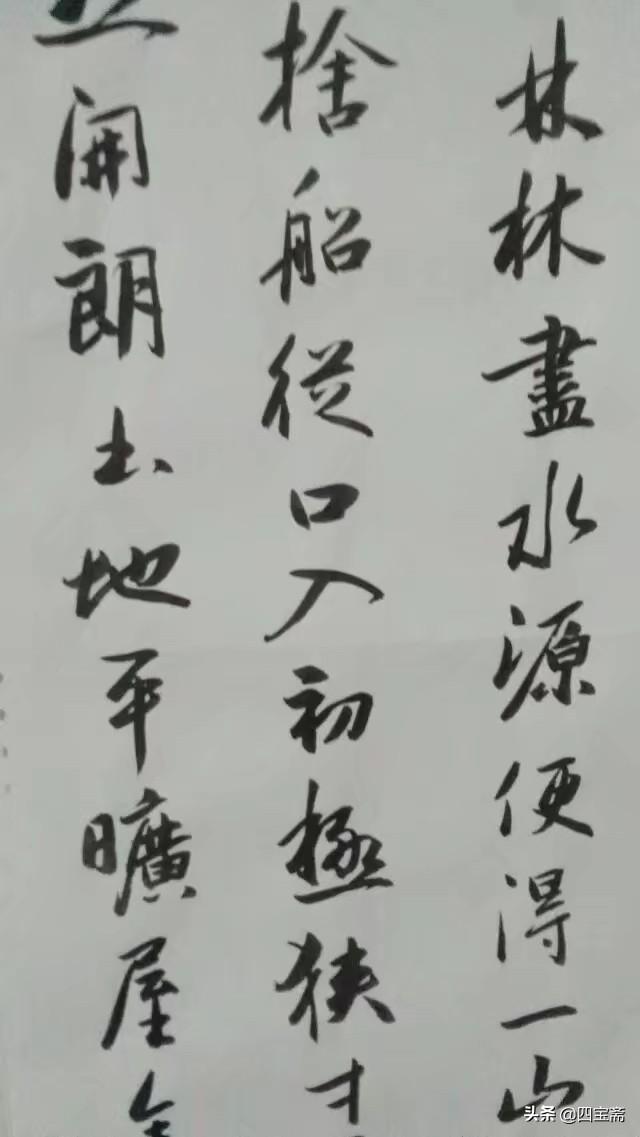 林林盡水源便得一山
捨船從口入初極狹才
開朗土地平曠屋舍
头条 @四宝斋